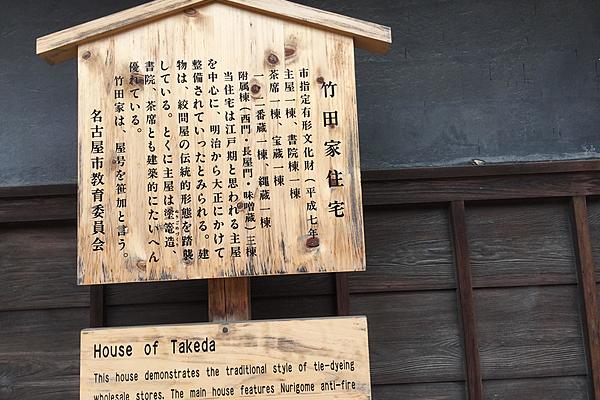 竹田家住宅
市指定有形文化財（平成七年）
主屋一棟、書院棟一棟
茶席一棟、宝蔵一棟
一・二番蔵一棟、縄蔵一棟
附属棟（西門・長屋門・味噌蔵）三棟
当住宅は江戸期と思われる主屋
を中心に、明治から大正にかけて
整備されていったとみられる。建
物は、絞問屋の伝統的形態を踏襲
している。とくに主屋は塗篭造、
書院、茶席とも建築的にたいへん
優れている。
竹田家は、屋号を笹加と言う。
名古屋市教育委員会
House of Takeda
This house demonstrates the traditional style of tie-dyeing
wholesale stores. The main house features Nurigome anti-fire